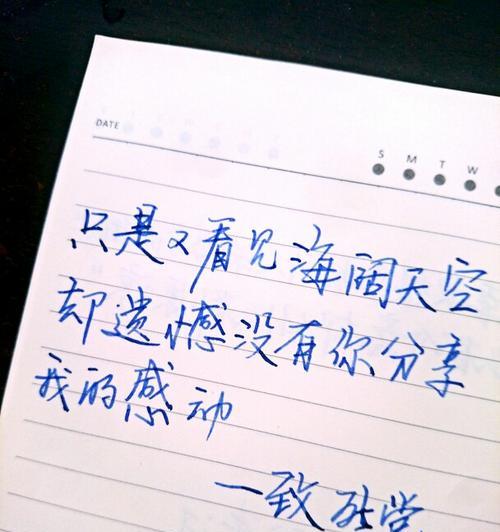 DATE
S M T W
只是又看见海阔天空
却遗憾没有你分享
我的感动
一致